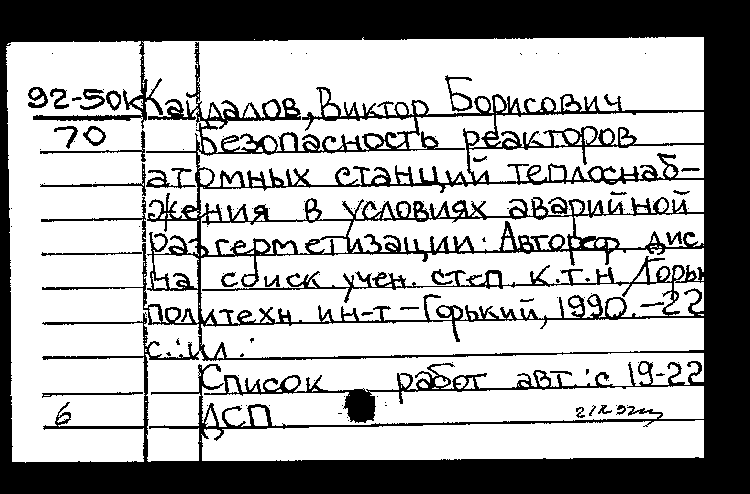 92-50к Кайдалов, Виктор Борисович.
70 Безопасность реакторов
атомных станций теплоснаб-
жения в условиях аварийной
разгерметизации: Автореф. дис.
на соиск. учен. степ. к.т.н. /Горьк
политехн. ин-т – Горький, 1990. – 22
с.: ил.
Список работ авт.: с. 19-22
6 ДСП.